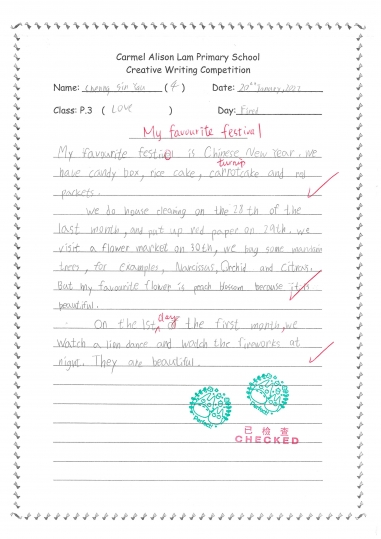 Carmel Alison Lam Primary School
Creative Writing Competition
Name: Cheung Sin Yau ( 4 ) Date: 20th January, 2022
Class: P.3 ( Love ) Day: Fird
My favourite festival
My favourite festival is Chinese New Year. We
turnip
have candy box, rice cake, carrotcake and red
packets.
We do house cleaning on the 28th of the
last month, and put up red paper on 29th. We
visit a flower market on 30th, we buy some
trees, for examples, Narcissus, Orchid and Citrus.
But my favourite flower is peach blossom because it is
beautiful.
day
On the 1st of the first month, we
watch a lion dance and watch the fireworks at
night. They are beautiful.
Perfect!
Perfect!
已檢查
CHECKED